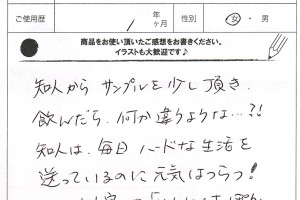 ご使用歴 / 年ヶ月 性別 女・男
商品をお使い頂いたご感想をお書きください。
イラストも大歓迎です♪
知人から サンプルを少し頂き、
飲んだら、何か違うような…?!
知人は、毎日 ハードな生活を
送っているのに 元気はつらつ!